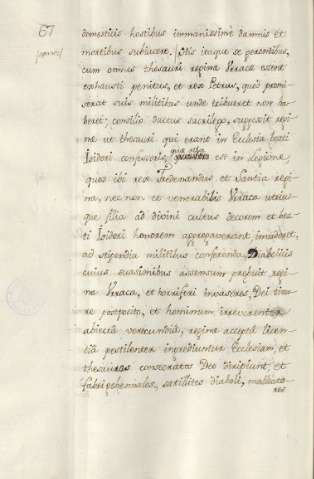 67
domesticis hostibus immanissime damnis et
mortibus subiacere. Otis itaque se petentibus,
cum omnes thesauri regina Vrraca essent
exhausti penitus, et rex Petrus, quid promi
serat suis militibus unde tribueret non ha
beret: consilio ductus sacrilego, suggessit regi
ne ut thesauri qui erant in Ecclesia beati
Isidori confessoris, que sita est in Legione,
quos ibi rex Fredenandus et Santia regi
na, nec non et venerabilis Vrraca utrius
que filia ad divini cultus decorem et bea
ti Isidori honorem aggregaverant, invaderet,
ad stipendia militibus conferenda. Diabolicis
cuius suasionibus assensum prebuit regi
na Vrraca, et horriferi invasores, Dei timo
re postposito, et hominum irreverenter
abiecta verecundia, regina accepta licen
tia pestilenter ingrediuntur Ecclesiam, et
thesauros consecratos Deo diripiunt, et
satellites diaboli,